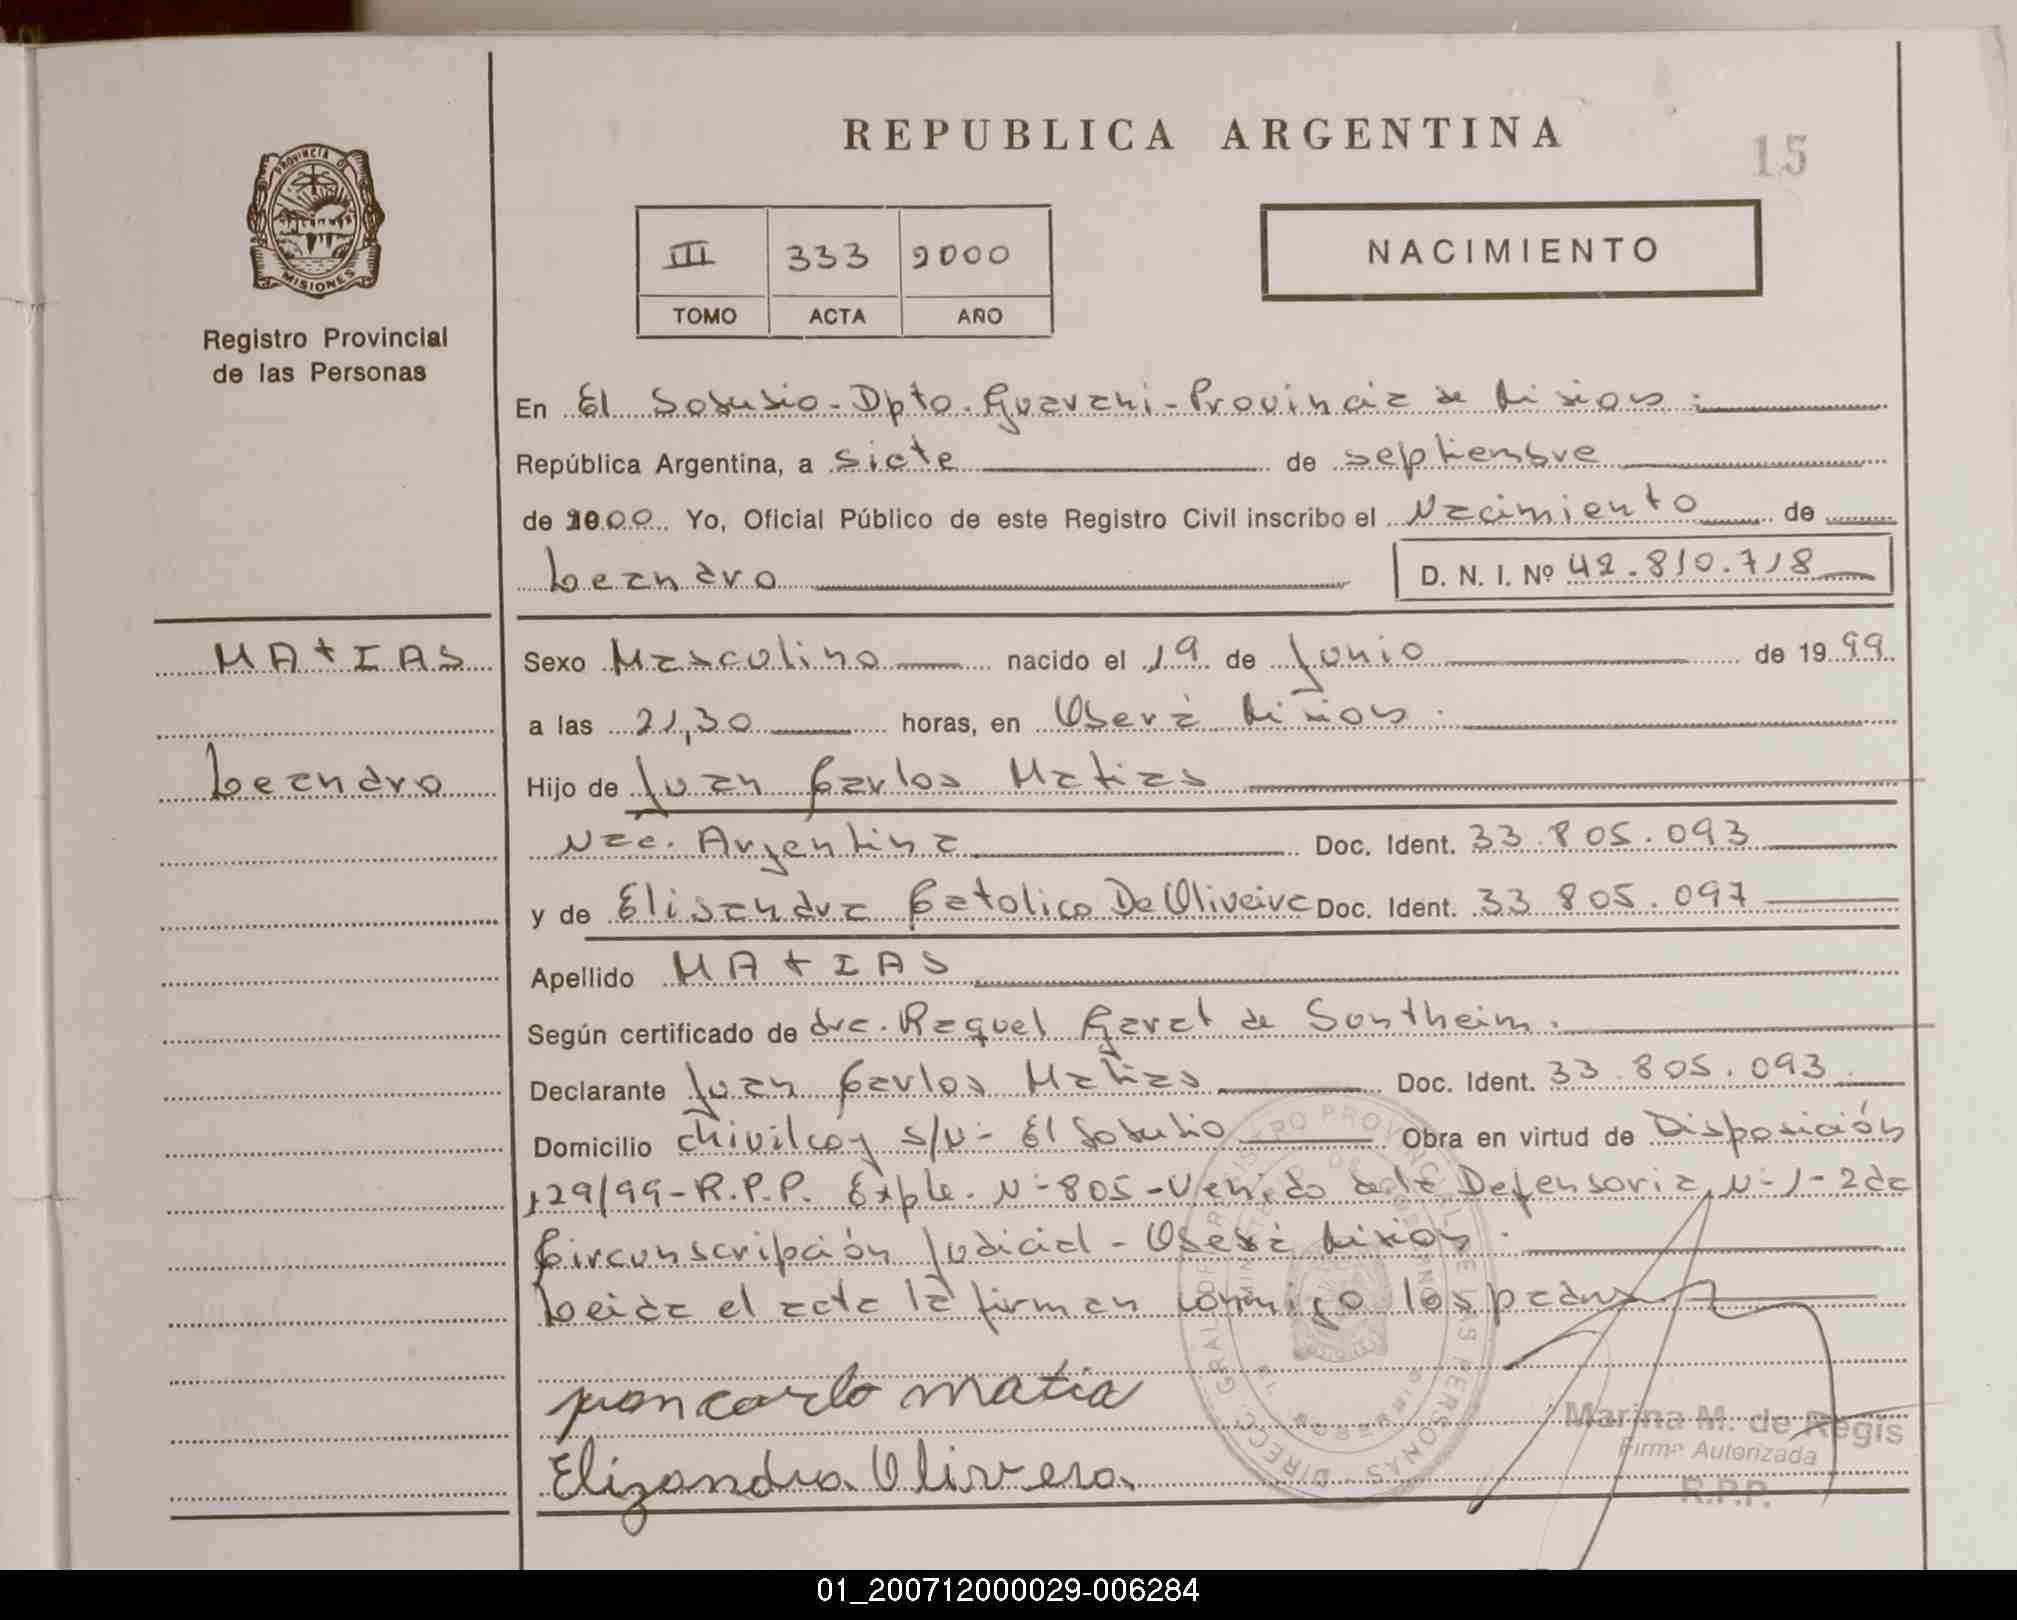 REPUBLICA ARGENTINA
15
PROVINCIA DE
MISIONES
Registro Provincial
de las Personas
III 333 2000
TOMO ACTA AÑO
NACIMIENTO
En El Soberbio - Dpto. Guarani - Provincia de Misiones.
República Argentina, a siete de septiembre
de 2000 Yo, Oficial Público de este Registro Civil inscribo el Nacimiento de
Leandro D. N. I. Nº 42.810.718
MATIAS
Leandro
Sexo Masculino nacido el 19 de Junio de 1999
a las 21,30 horas, en Oberá Misiones.
Hijo de Juan Carlos Matias
Nac. Argentina Doc. Ident. 33.805.093
y de Elisandra Catolico De Oliveira Doc. Ident. 33 805.097
Apellido MATIAS
Según certificado de dra. Raquel Garat de Sontheim.
Declarante Juan Carlos Matias Doc. Ident. 33.805.093
Domicilio Chivilcoy S/Nº El Soberbio Obra en virtud de Disposición
129/99 - R.P.P. Expte. Nº 805 - Venido de la Defensoria Nº 1 - 2da
Circunscripción Judicial - Oberá Misiones.
Leida el acta la firman conmigo los padres
juan carlo matia
Elizandra Olivera.
Marina M. de Regis
Firma Autorizada
R.P.P.
01_200712000029-006284